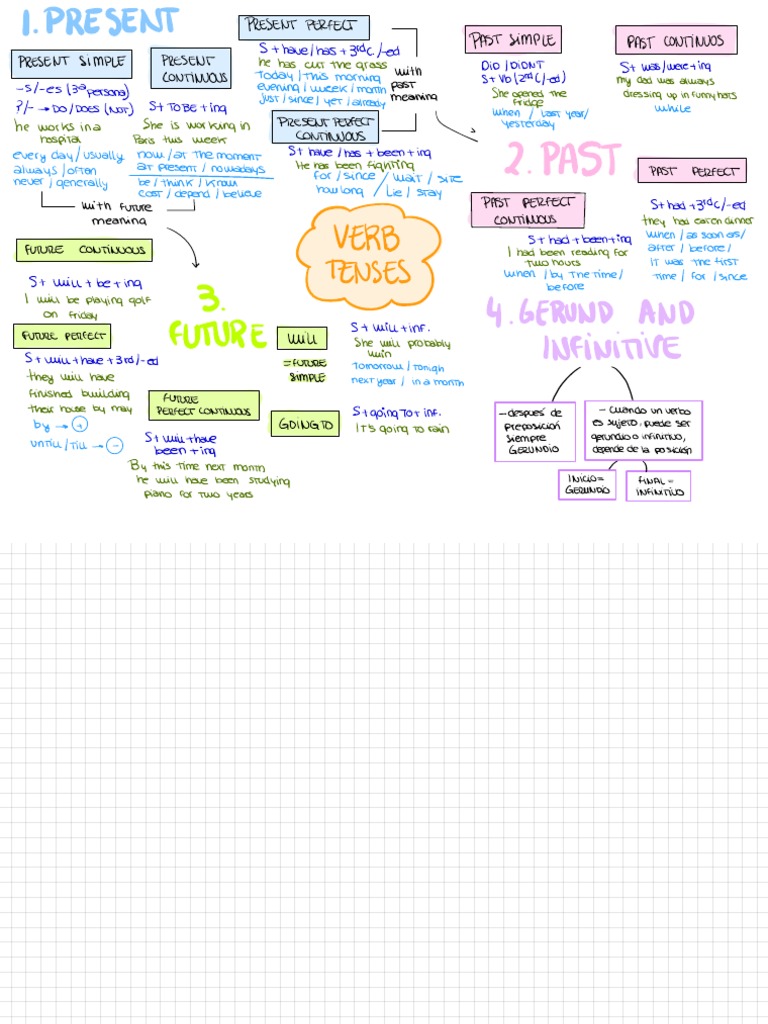 1. PRESENT
PRESENT SIMPLE
-s/-es (3ª persona)
?/- → DO/DOES (NOT)
he works in a
hospital
every day/usually
always/often
never/generally
PRESENT
CONTINUOUS
S+ TO BE + ing
She is working in
Paris this week
now/at the moment
at present/nowadays
be/think/know
cost/depend/believe
with future
meaning
PRESENT PERFECT
S+have/has+3rd c./-ed
he has cut the grass
today/this morning
evening/week/month
just/since/yet/already
PRESENT PERFECT
CONTINUOUS
S+ have/has+been+ing
He has been fighting
for/since/wait/site
how long/lie/stay
with
past
meaning
PAST SIMPLE
DID/DIDNT
S+Vb (2nd c/-ed)
She opened the
fridge
when/last year/
yesterday
PAST CONTINUOS
S+ was/were+ing
my dad was always
dressing up in funny hats
while
2. PAST
PAST PERFECT
CONTINUOUS
S+had+been+ing
I had been reading for
two hours
when/by the time/
before
PAST PERFECT
S+had+3rd c/-ed
they had eaten dinner
when/as soon as/
after/before/
it was the first
time/for/since
VERB
TENSES
3.
FUTURE
FUTURE CONTINUOUS
S+ will+be+ing
I will be playing golf
on friday
FUTURE PERFECT
S+will+have+3rd/-ed
they will have
finished building
their house by may
by → +
untill/till → -
FUTURE
PERFECT CONTINUOUS
S+will+have
been+ing
By this time next month
he will have been studying
piano for two years
WILL
=FUTURE
SIMPLE
S+will+inf.
She will probably
win
tomorrow/tonigh
next year/in a month
GOING TO
S+going to+inf.
It's going to rain
4. GERUND AND
INFINITIVE
-después de
preposición
siempre
GERUNDIO
- Cuando un verbo
es sujeto, puede ser
gerundio o infinitivo,
depende de la posición
INICIO=
GERUNDIO
FINAL=
INFINITIVO